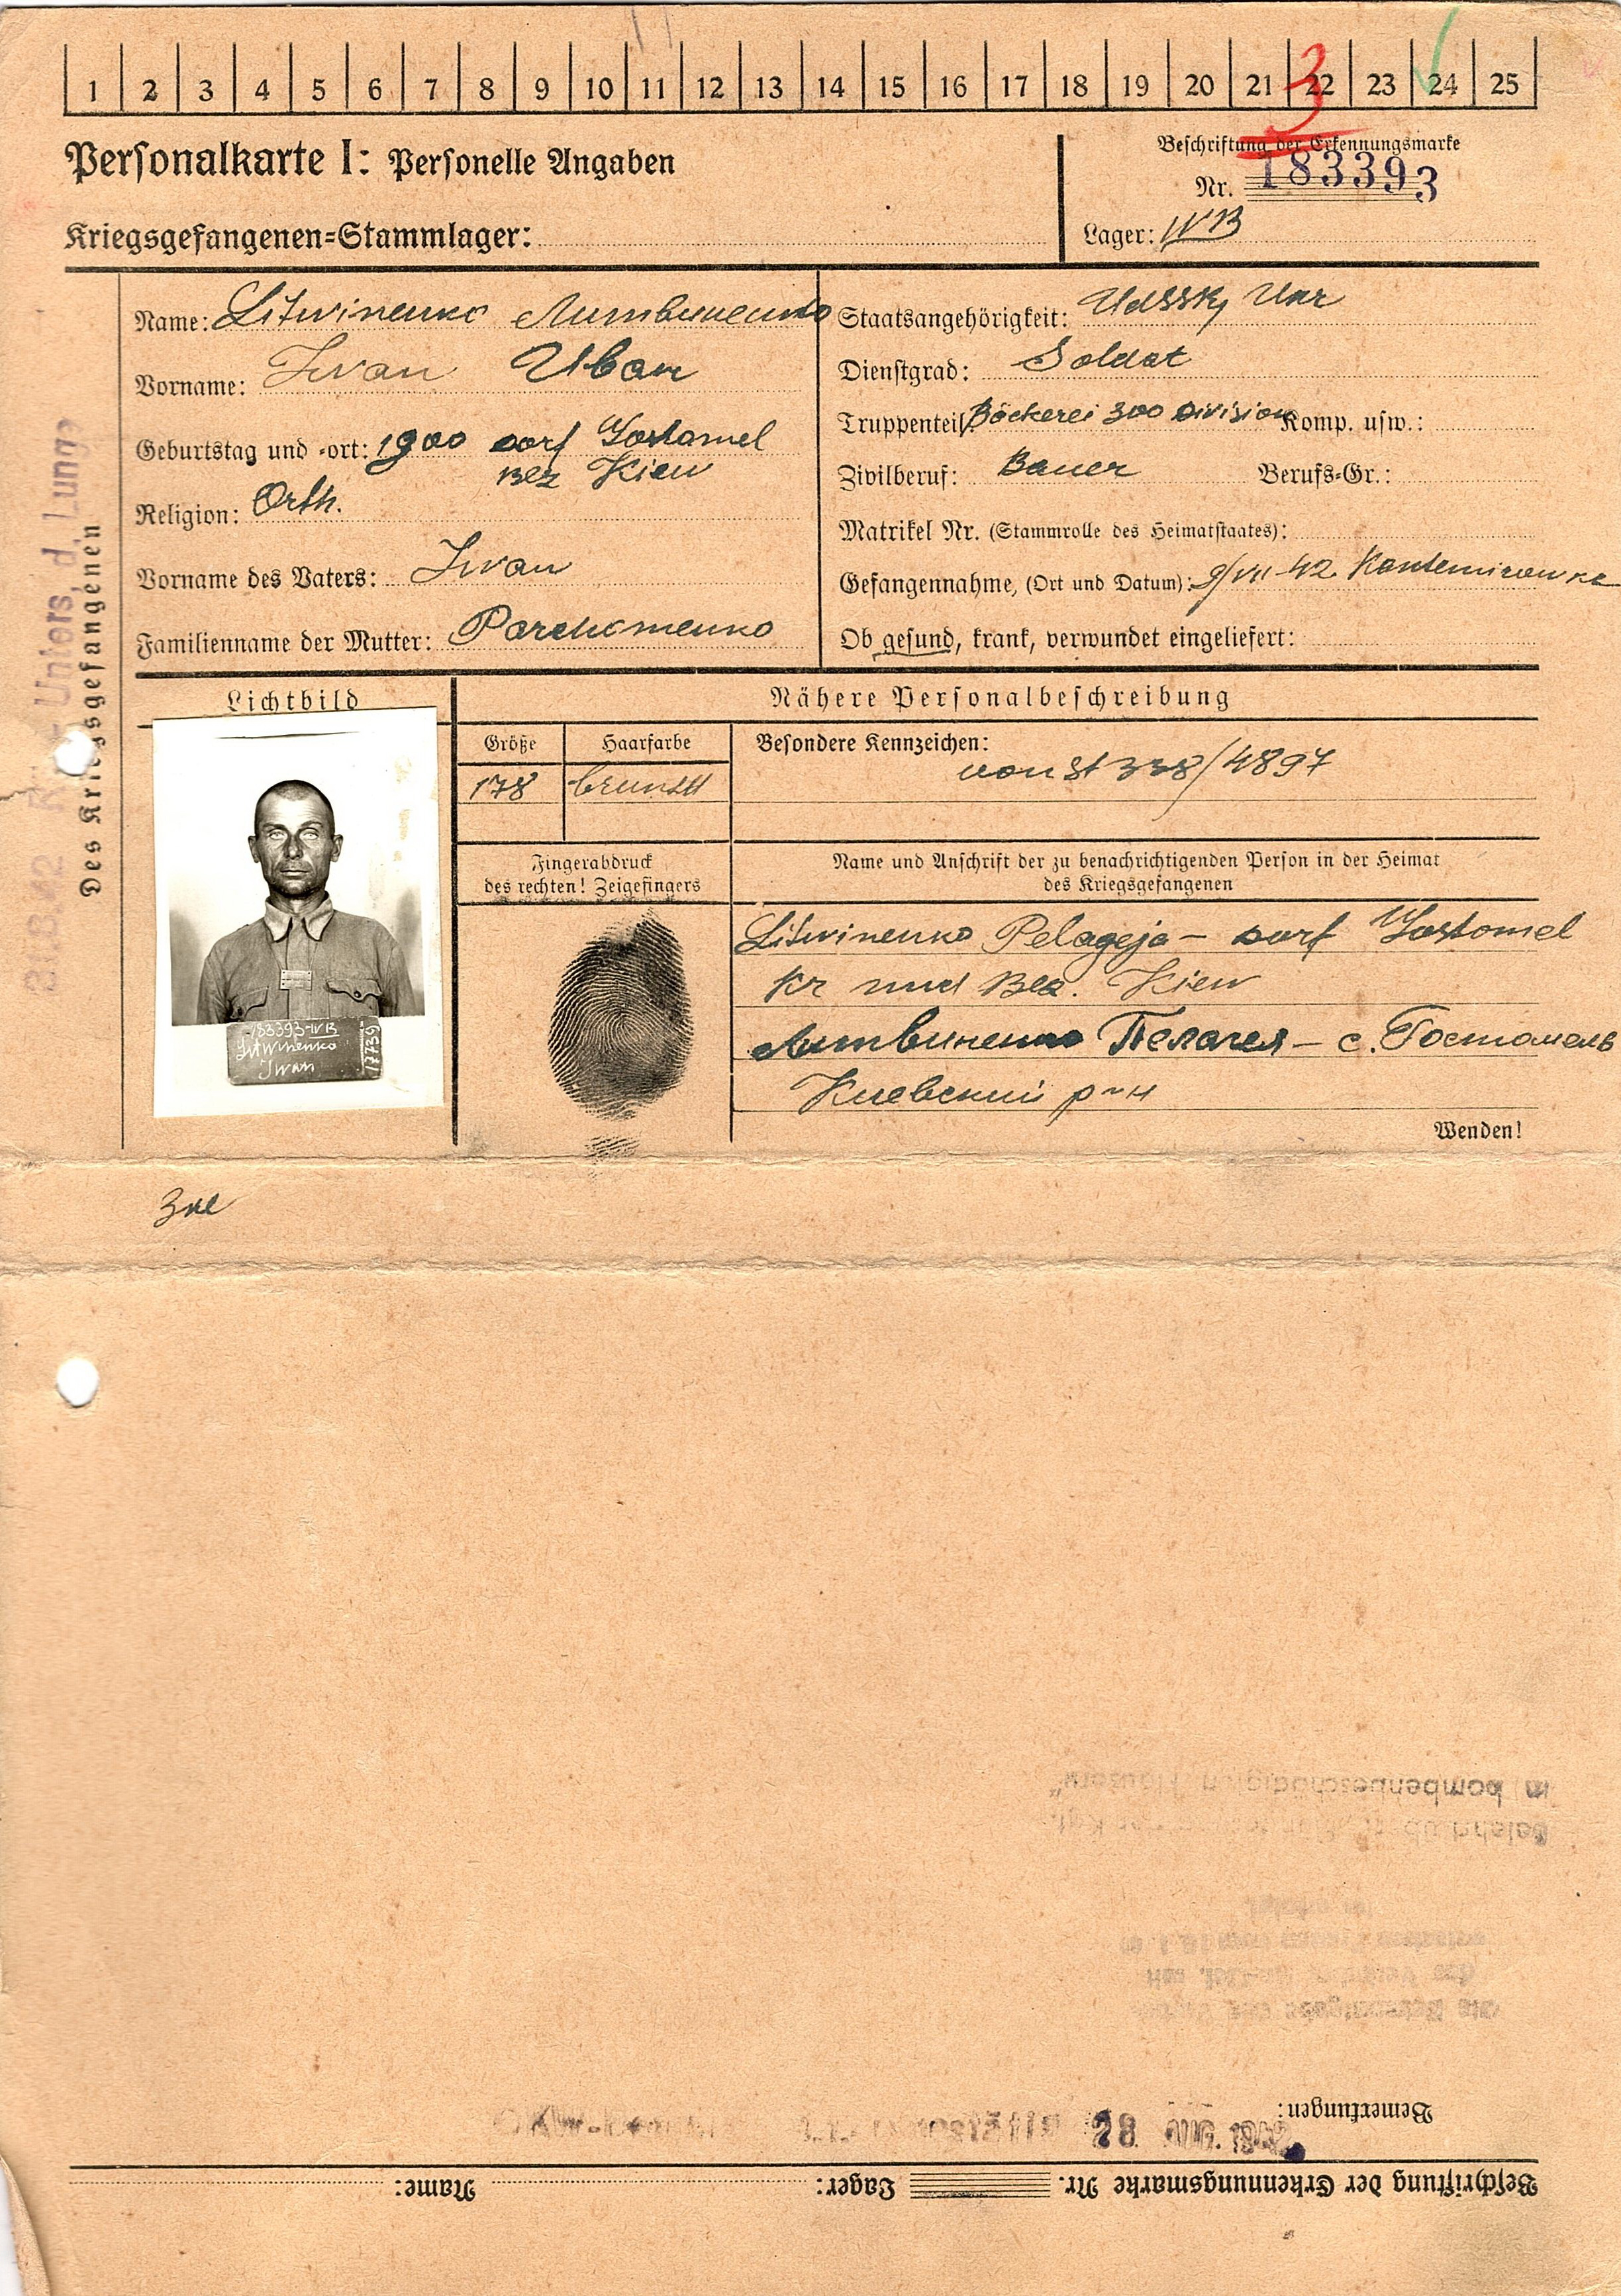 1 2 3 4 5 6 7 8 9 10 11 12 13 14 15 16 17 18 19 20 21 22 23 24 25
3
Personalkarte I: Personelle Angaben
Beschriftung der Erkennungsmarke
Nr. 183393
Kriegsgefangenen=Stammlager:
Lager: IVB
Des Kriegsgefangenen
Unters. d. Lunge
Name: Litwinenko Литвиненко
Vorname: Iwan Иван
Geburtstag und =ort: 1900 dorf Gostomel
Bez Kiew
Religion: Orth.
Vorname des Vaters: Iwan
Familienname der Mutter: Parchomenko
Staatsangehörigkeit: UdSSR, Ukr
Dienstgrad: Soldat
Truppenteil: Bäckerei 300 Division Komp. usw.:
Zivilberuf: Bauer Berufs=Gr.:
Matrikel Nr. (Stammrolle des Heimatstaates):
Gefangennahme, (Ort und Datum): 9/VII 42 Kantemirowka
Ob gesund, krank, verwundet eingeliefert:
Lichtbild
183393-IVB
Litwinenko
Iwan
17739
Nähere Personalbeschreibung
Größe Haarfarbe
178
Besondere Kennzeichen:
von St 338/4897
Fingerabdruck
des rechten! Zeigefingers
Name und Anschrift der zu benachrichtigenden Person in der Heimat
des Kriegsgefangenen
Litwinenko Pelageja - dorf Gostomel
Kr und Bez. Kiew
Литвиненко Пелагея - с. Гостомель
Киевский р-н
Wenden!
in bombenbeschädigten Häusern"
Bemerkungen:
28. AUG. 1942
Beschriftung der Erkennungsmarke Nr. Lager: Name: